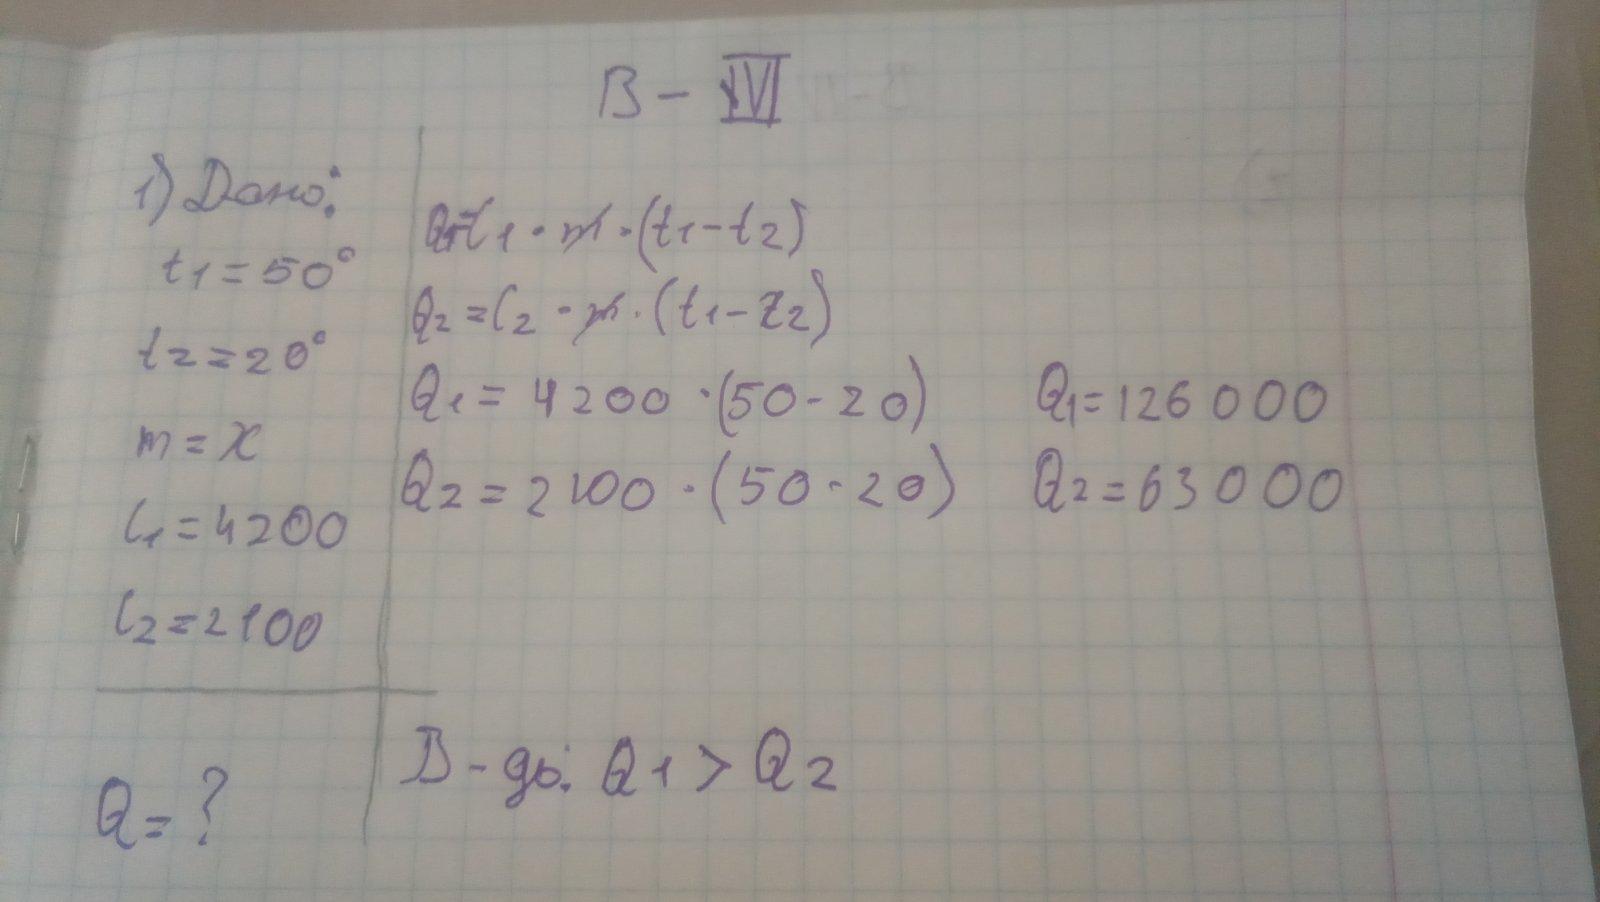 В - IV
1) Дано:
t1 = 50°
t2 = 20°
m = x
C1 = 4200
C2 = 2100
Q = ?
Q1 = C1 · m · (t1 - t2)
Q2 = C2 · m · (t1 - t2)
Q1 = 4200 · (50 - 20) Q1 = 126 000
Q2 = 2100 · (50 - 20) Q2 = 63 000
В-дь: Q1 > Q2